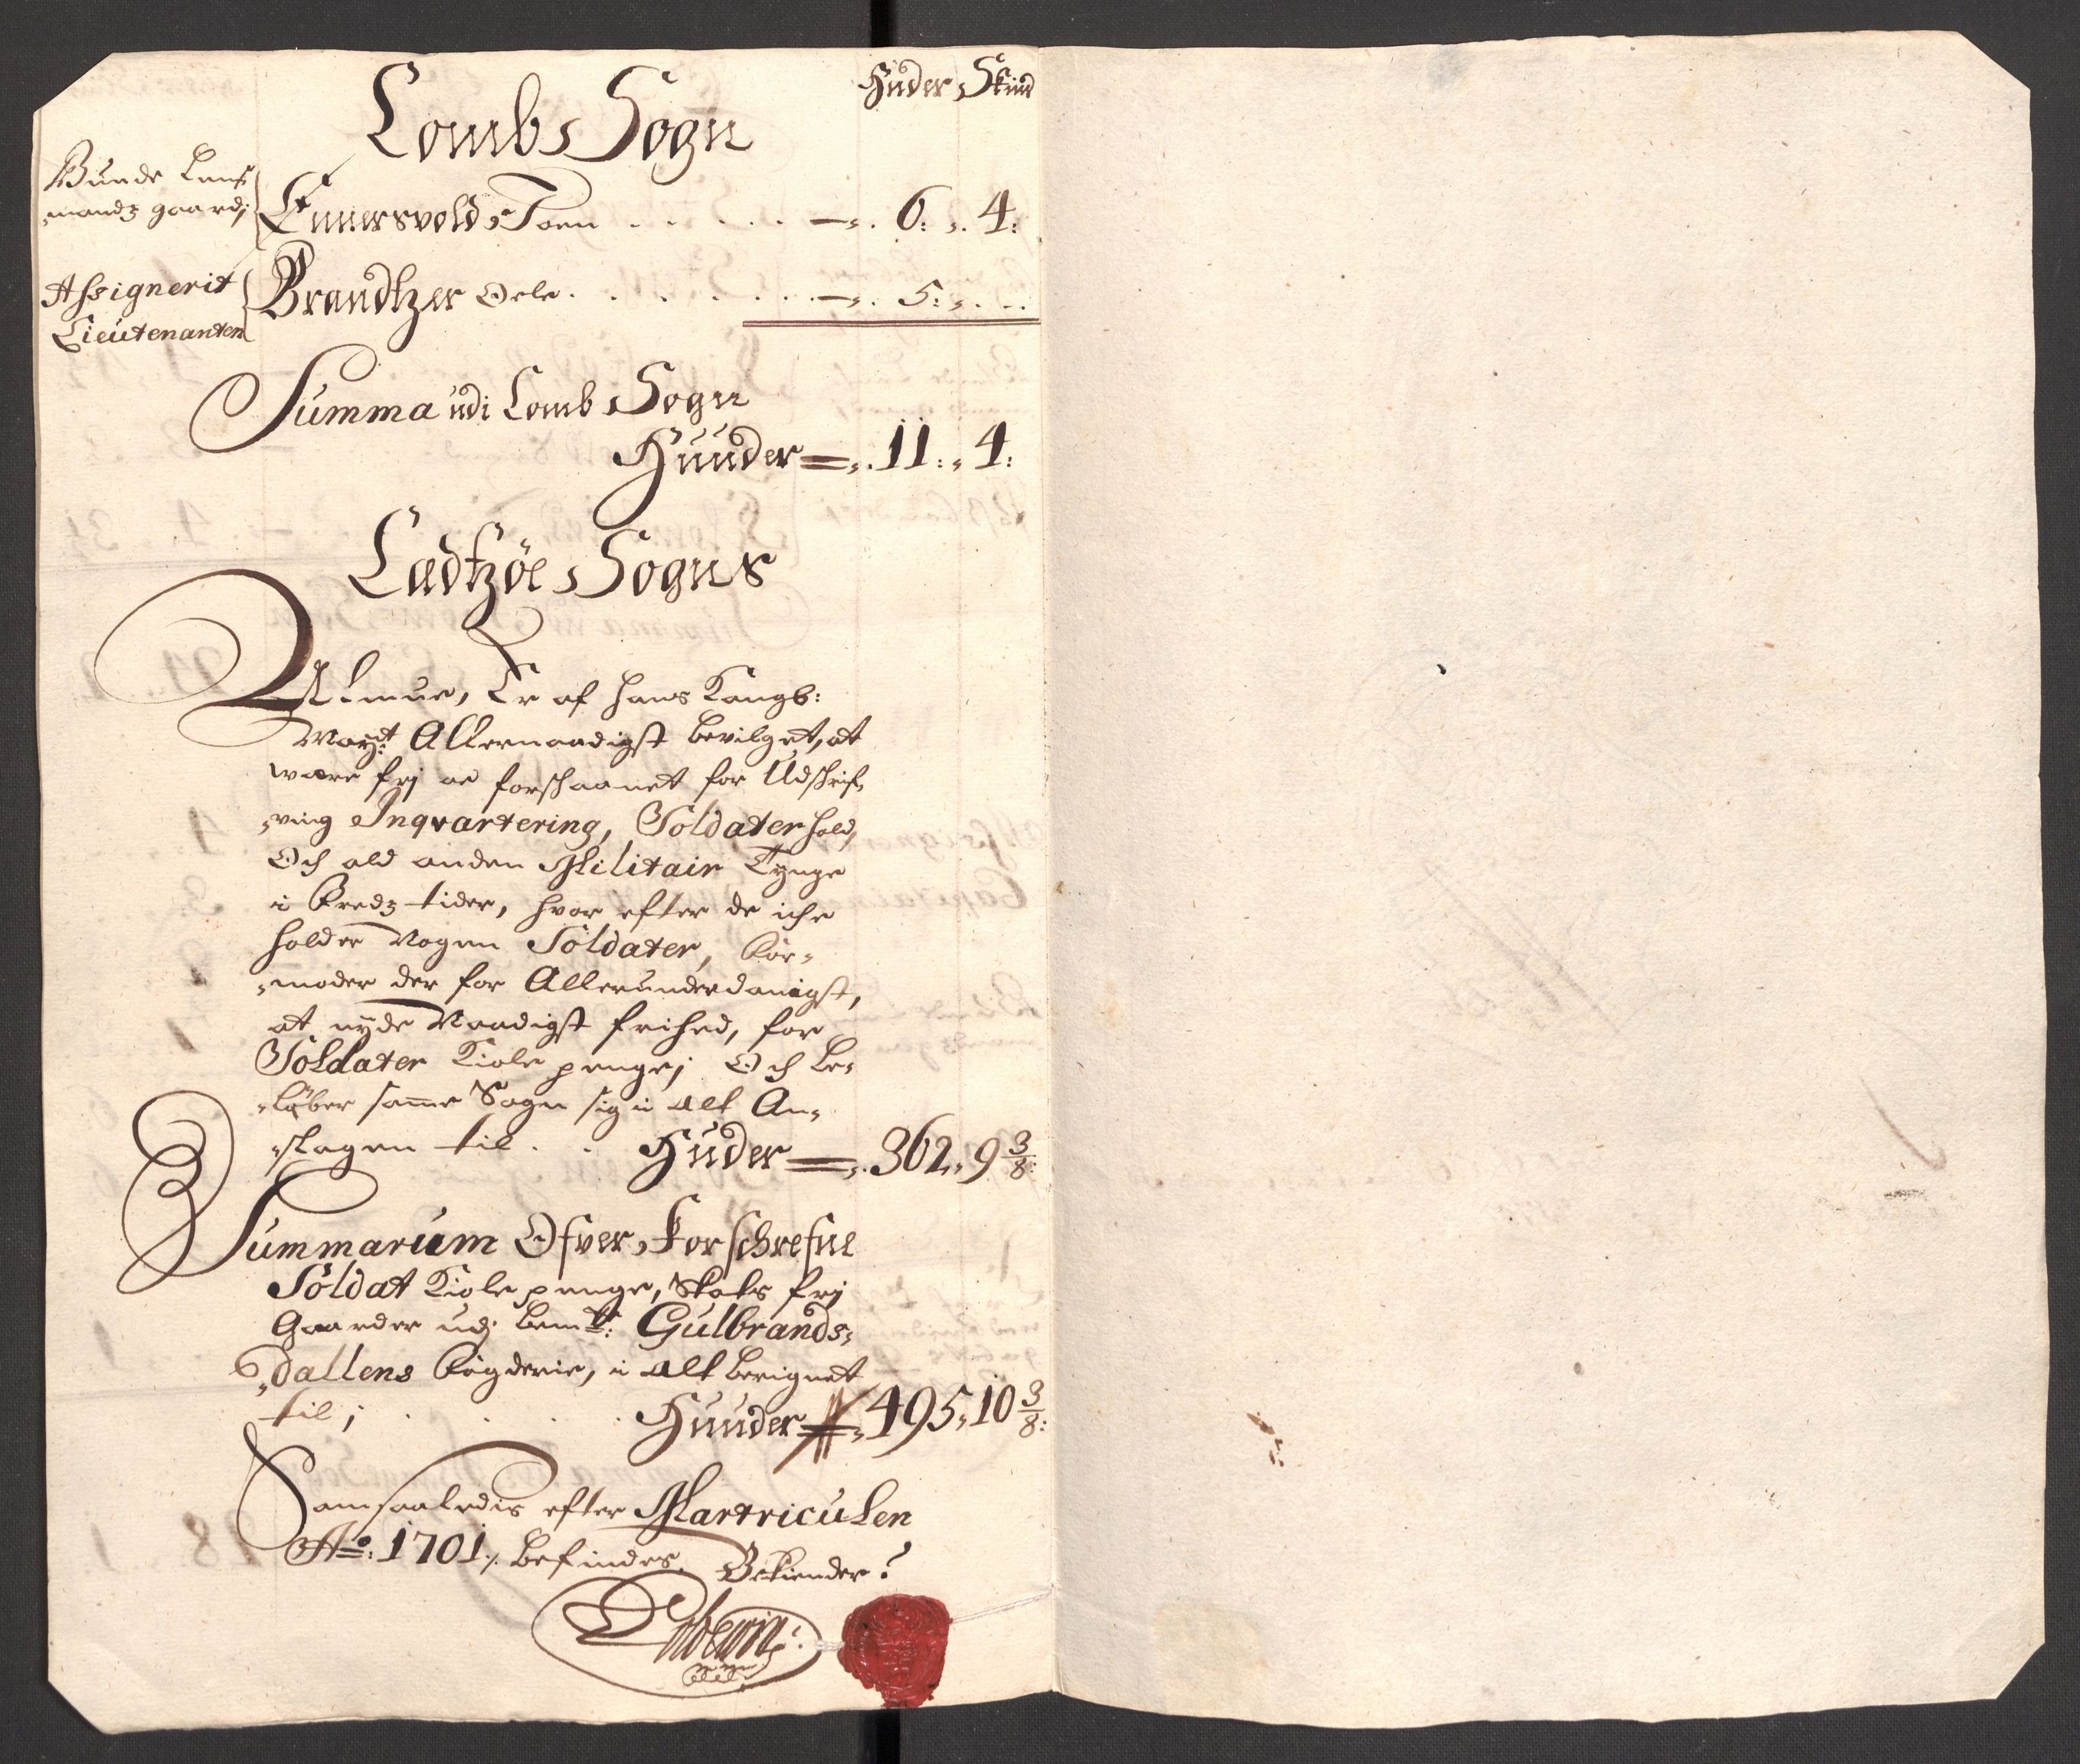 Huder Skind
Lombs Sogn
Bunde Lens
mandz gaard;
Ennersvold, Toen . . . . . 6: 4:
Assignerit
Lieutenanten
Brandtzer Oele . . . . . 5: . . .
Summa udi Lomb Sogn
Huuder = 11: 4:
Ladtzöe Sogns
Allmue, Er af hans Kongl:
Mayt: Allernaadigst bevilget, at
være frj oc forschaanet for Udschrif,
,ving Inqvartering, Soldaterhold,
Och ald anden Militair Tynge
i Fredz tider, hvor efter de iche
holder Nogen Soldater, For-
-moder der for Allerunderdanigst,
at nyde Naadigst frihed, for
Soldater Kiole penge; Och be-
-løber samme Sogn sig i alt An-
-slagen til . . Huder = 362, 9 3/8:
Summarum Ofver, Forschrefne
Soldat Kiole penge, Skats frj
Gaarder udj bemte: Gulbrands-
-dallens Fogderie, i alt beregnet
til; . . . . Huuder = 495, 10 3/8:
Samsaaledis efter Martriculen
Ao: 1701, befindes, Bekiender?